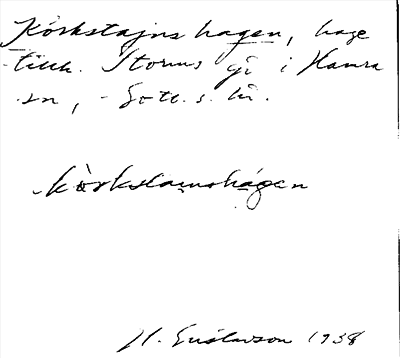 Körkstajnshagen, hage
tillh. Storms gd i Hamra
sn, Gotl. s. hd.
kòrkstamshágen
H. Gustavson 1938